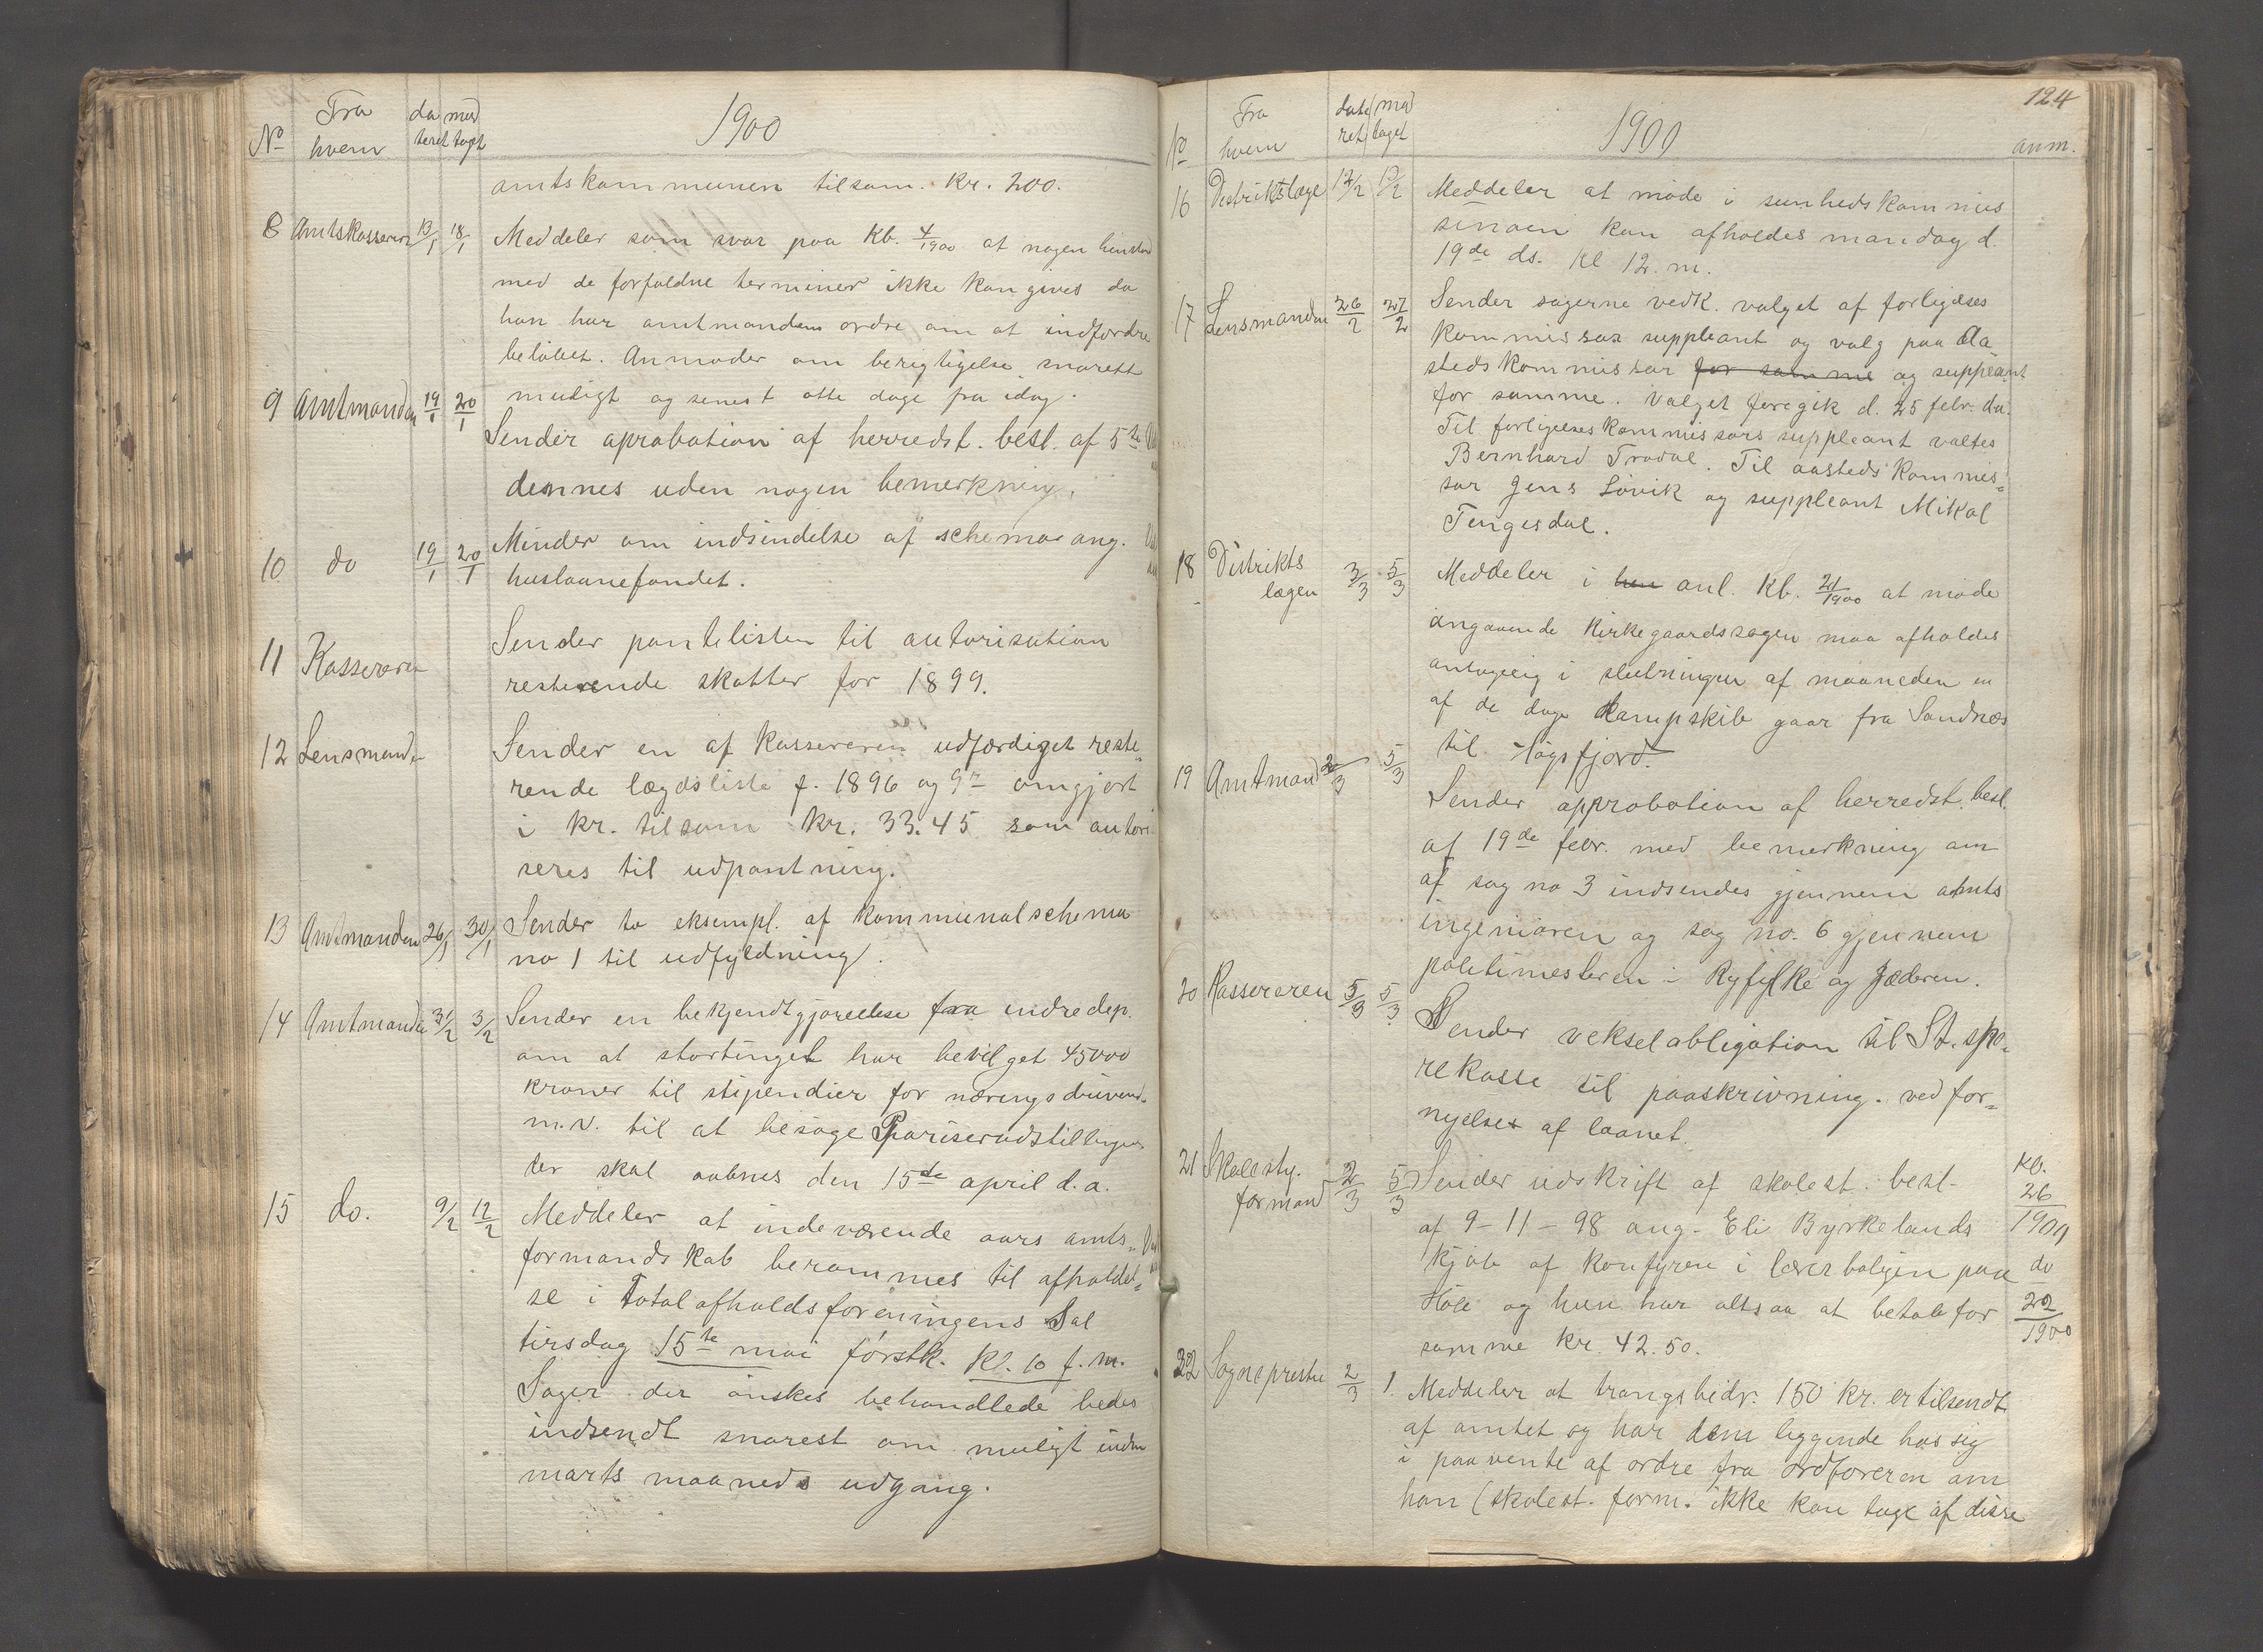 No Fra hvem dateret modtaget 1900
amtskommunen tilsam. Kr. 200.
8 Amtskasseren 13/1 18/1 Meddeler som svar paa Kb. 4/1900 at nogen henstand
med de forfaldne terminer ikke kan gives da
han har amtmandens ordre om at indfordre
beløbet. Anmoder om berigtigelse snarest
muligt og senest otte dage fra idag.
9 Amtmanden 19/1 20/1 Sender aprobation af herredst. besl. af 5te
dennes uden nogen bemerkning.
10 do 19/1 20/1 Minder om indsendelse af schemae ang.
huslaanefondet.
11 Kasseren Sender pantelisten til autorisation
resterende skatter for 1899.
12 Lensmanden Sender en af kassereren udfærdiget reste-
rende lægdsliste f. 1896 og 97 omgjort
i kr. tilsam kr. 33.45 som autori
seres til udpantning.
13 Amtmanden 26/1 30/1 Sender to eksempl. af kommunalschema
no 1 til udfyldning.
14 Amtmanden 31/2 3/2 Sender en bekjendtgjørelse fra indredep.
om at stortinget har bevilget 45000
kroner til stipendier for næringsdrivend.
m.v. til at besøge Pariserudstillingen
der skal aabnes den 15de april d.a.
15 do. 9/2 12/2 Meddeler at indeværende aars amts-
formandskab berammes til afholdel-
se i Totalafholdsforeningens Sal
tirsdag 15te mai førstk. Kl. 10 f.m.
Sager der ønskes behandlede bedes
indsendt snarest om muligt inden
marts maaneds udgang.
124
No Fra hvem dateret modtaget 1900 anm.
16 Distriktslæge 12/2 13/2 Meddeler at møde i sunhedskommis
sionen kan afholdes mandag d.
19de ds. Kl 12. m.
17 Lensmanden 26/2 27/2 Sender sagerne vedk. valget af forligelses
kommissær suppleant og valg paa Aa-
stedskommissær for samme og suppleant
for samme. Valget foregik d. 25 febr. d.a.
Til forligelseskommissærs suppleant valtes
Bernhard Tradal. Til aastedskommis-
sær Jens Løvik og suppleant Mikal
Tengesdal.
18 Distrikts lægen 3/3 5/3 Meddeler i hen anl. Kb. 21/1900 at møde
angaaende Kirkegaardssagen maa afholdes
antagelig i slutningen af maaneden en
af de dage dampskib gaar fra Sandnes
til Høgsfjord.
19 Amtmand 2/3 5/3 Sender approbation af herredst. besl.
af 19de febr. med bemerkning om
at sag no 3 indsendes gjennem amts
ingeniøren og sag no. 6 gjennem
politimesteren i Ryfylke og Jæderen.
20 Kassereren 5/3 5/3 Sender vekselobligation til St. spa-
rekasse til paaskrivning. ved for-
nyelser af laanet.
21 Skolesty. formand 2/3 5/3 Sender udskrift af skolest. besl. Kb. 26/1900
af 9-11-98 ang. Eli Byrkelands
kjøb af komfyren i lærerboligen paa do
Høle og hun har altsaa at betale for 22/1900
samme kr. 42.50.
22 Sogneprester 2/3 1. Meddeler at trangsbidr. 150 kr. er tilsendt
af amtet og har dem liggende hos sig
i paavente af ordre fra ordføreren om
han (skolest. form. ikke kan tage af disse